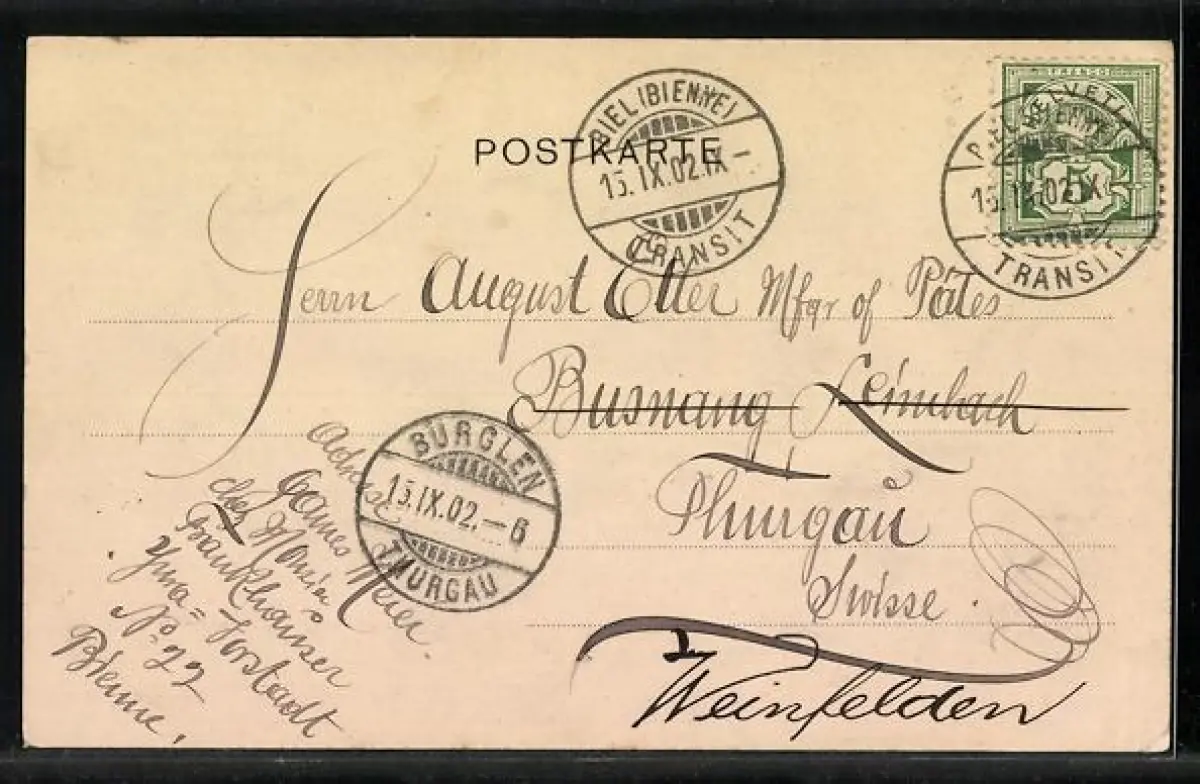 POSTKARTE
BIEL (BIENNE)
15.IX.02.IX-
TRANSIT
FRANCO
HELVETIA
5
BIEL (BIENNE)
15.IX.02.IX
TRANSIT
Herrn August Etter Mfgr of Pâtes
Busnang Leimbach
Thurgau
Swisse.
Weinfelden
BÜRGLEN
15.IX.02.-6
THURGAU
Adresse
James Meier
chez Monsieur
Frankhauser
Yma=Vorstadt
No. 22
Bienne,